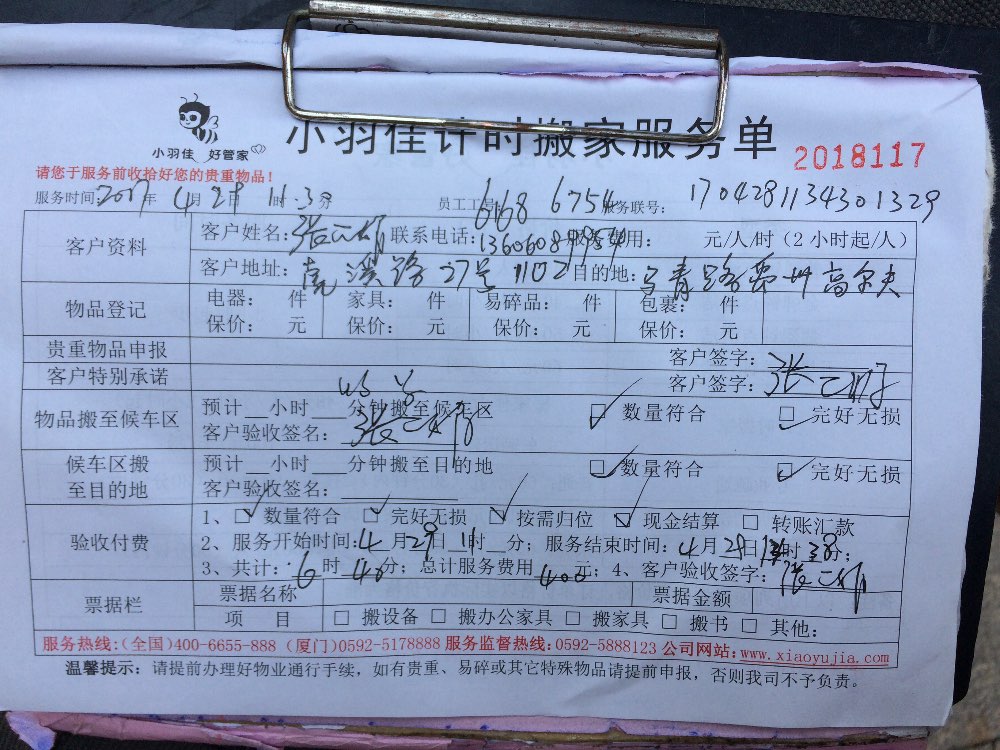 小羽佳 好管家
小羽佳计时搬家服务单
2018117
请您于服务前收拾好您的贵重物品！
服务时间：2017年 4月 29日 11时 3分 员工工号： 6168 6754 服务联号： 1704281134301329
客户资料
客户姓名：张 联系电话： 服务费用： 元/人/时（2小时起/人）
客户地址：南溪路27号1102 目的地： 高尔夫
物品登记
电器： 件 家具： 件 易碎品： 件 包裹： 件
保价： 元 保价： 元 保价： 元 保价： 元
贵重物品申报 客户签字：张
客户特别承诺 客户签字：张
物品搬至候车区
预计__小时___分钟搬至候车区 数量符合 完好无损
客户验收签名：张
候车区搬至目的地
预计__小时___分钟搬至目的地 数量符合 完好无损
客户验收签名：
验收付费
1、数量符合 完好无损 按需归位 现金结算 转账汇款
2、服务开始时间：4月29日11时__分；服务结束时间：4月 日 时 分；
3、共计：6时40分；总计服务费用400元；4、客户验收签字：张
票据栏
票据名称 票据金额
项 目 搬设备 搬办公家具 搬家具 搬书 其他：
服务热线：（全国）400-6655-888（厦门）0592-5178888 服务监督热线：0592-5888123 公司网站：www.xiaoyujia.com
温馨提示：请提前办理好物业通行手续，如有贵重、易碎或其它特殊物品请提前申报，否则我司不予负责。